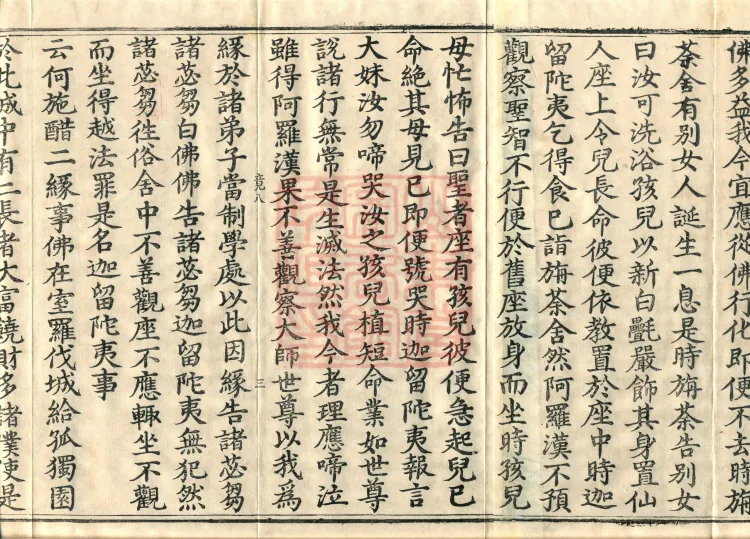 佛多益我今宜應從佛行化即便不去時旃
荼舍有別女人誕生一息是時旃荼告別女
曰汝可洗浴孩兒以新白疊嚴飾其身置仙
人座上令兒長命彼便依教置於座中時迦
留陀夷乞得食已詣旃荼舍然阿羅漢不預
觀察聖智不行便於舊座放身而坐時孩兒
母忙怖告曰聖者座有孩兒彼便急起兒已
命絕其母見已即便號哭時迦留陀夷報言
大妹汝勿啼哭汝之孩兒植短命業如世尊
說諸行無常是生滅法然我今者理應啼泣
雖得阿羅漢果不善觀察大師世尊以我為
竟八
三
緣於諸弟子當制學處以此因緣告諸苾芻
諸苾芻白佛佛告諸苾芻迦留陀夷無犯然
諸苾芻往俗舍中不善觀座不應輒坐不觀
而坐得越法罪是名迦留陀夷事
云何施醋二緣事佛在室羅伐城給孤獨園
於此城中有二長者大富饒財多諸僕使是